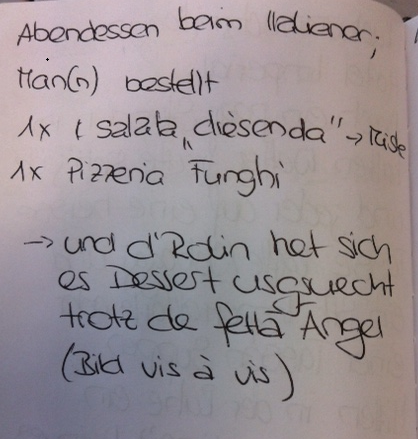 Abendessen beim Italiener;
Man(n) bestellt
1x „salata „diesenda" →
1x Pizzeria Funghi
→ und d'Rolin het sich
es Dessert usgsuecht
trotz de fettä Angel
(Bild vis à vis)